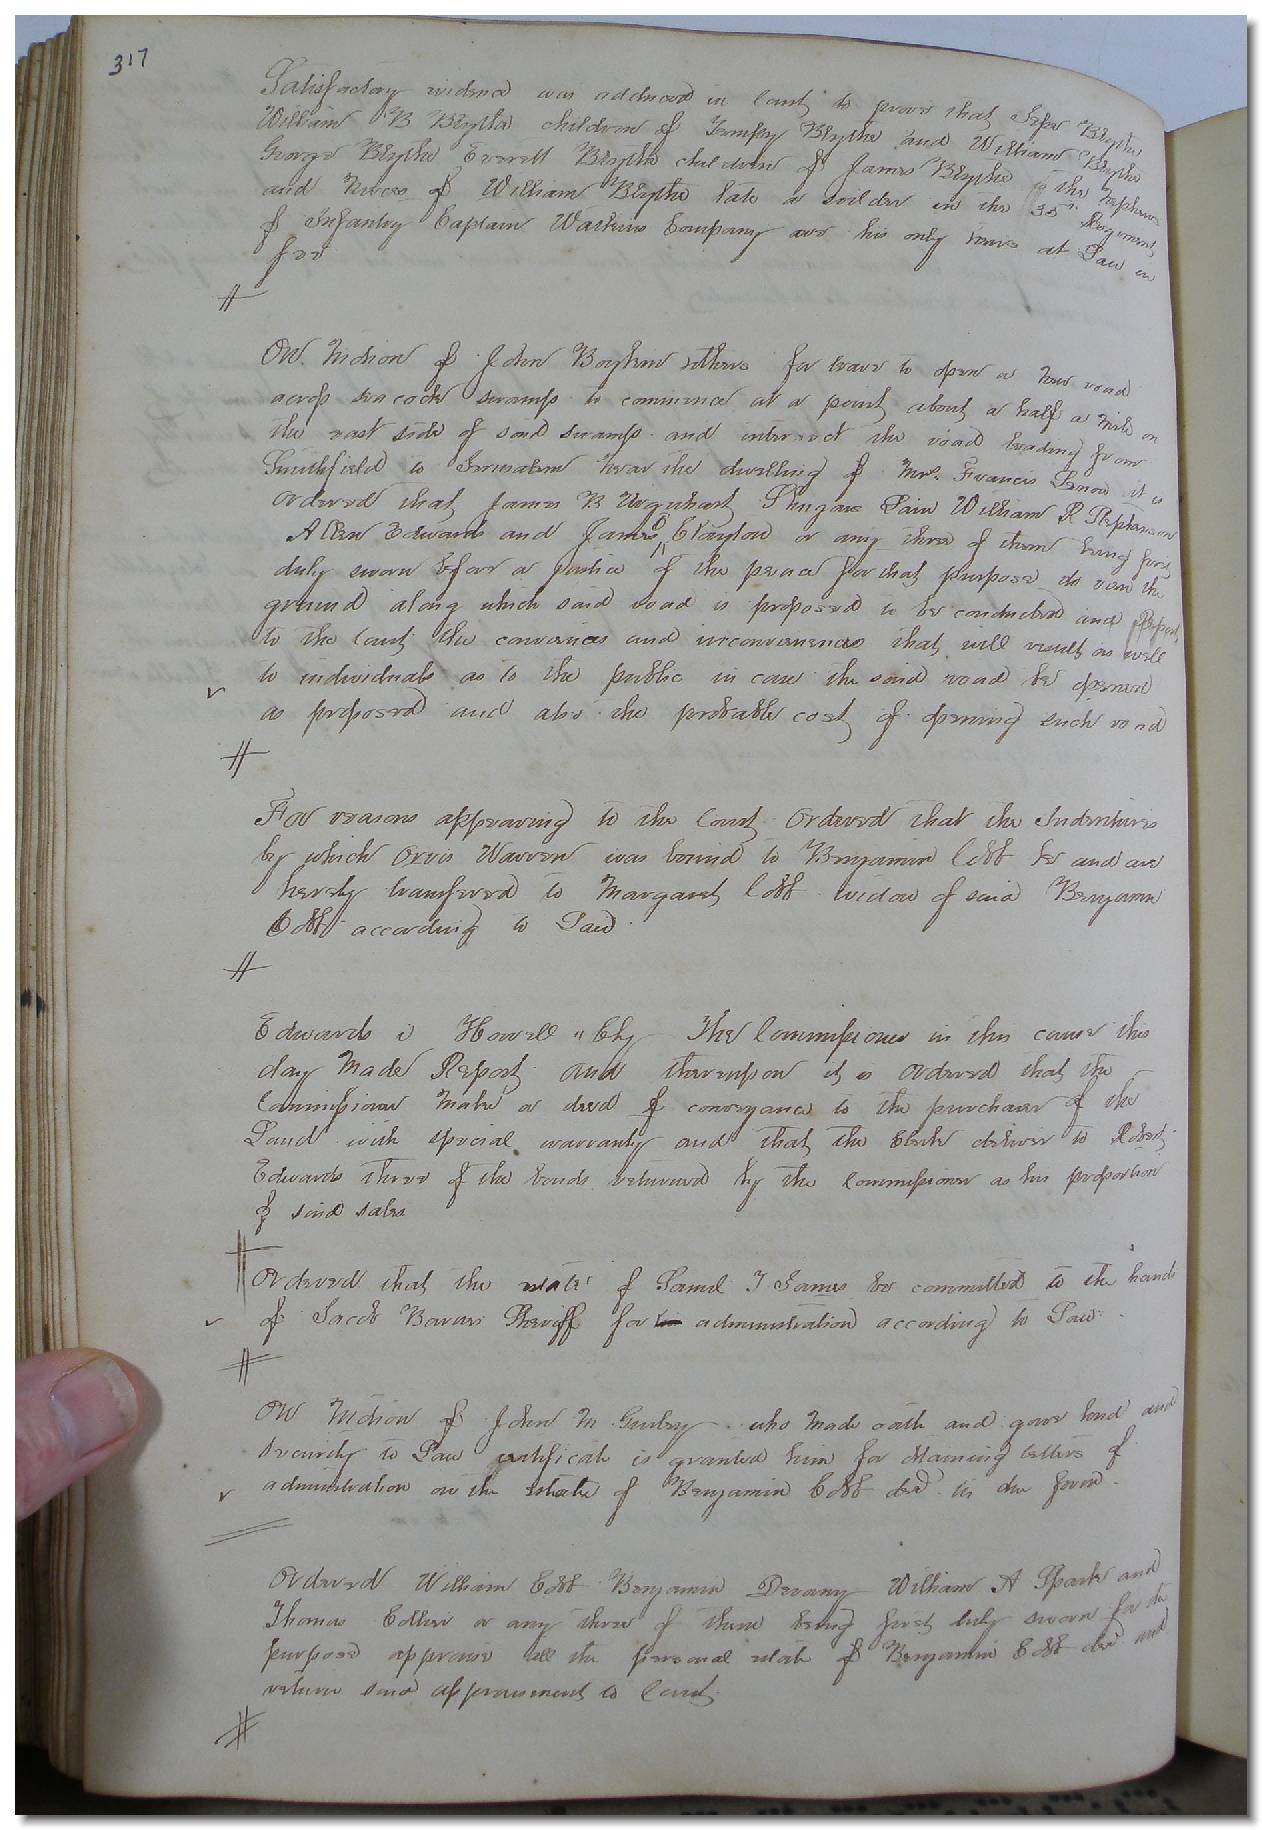 317
Satisfactory evidence was adduced in Court to prove that Blythe
William B Blythe children of Blythe and William Blythe
George Blythe Everett Blythe children of James Blythe the Nephews
and Nieces of William Blythe late a soilder in the 35th Regiment
of Infantry Captain Watkins Company are his only heires at Law in
fee
On Motion of John Boykin others for leave to open a New road
across seacock swamp to commence at a point about a half a mile on
the east side of said swamp and intersect the road leading from
Smithfield to Jerusalem near the dwelling of Mrs. Francis it is
Ordered that James B Urquhart Shugars Lain William R Stephenson
Allen Edwards and James Clayton or any three of them being first
duly sworn before a justice of the peace for that purpose do view the
ground along which said road is proposed to be conducted and Report
to the Court the conveniences and inconveniences that will result as well
to individuals as to the public in case the said road be opened
as proposed and also the probable cost of opening such road
For reasons appearing to the Court Ordered that the Indentures
by which Orris Warren was bound to Benjamin Cobb be and are
hereby transfered to Margaret Cobb widow of said Benjamin
Cobb according to Law
Edwards v Howell " Chy The Commissioner in this cause this
day Made Report and thereupon it is Ordered that the
Commissioner Make a deed of conveyance to the purchaser of the
Land with special warranty and that the Clerk deliver to Robert
Edwards three of the bonds returned by the Commissioner as his proportion
of said sales
Ordered that the estate of Samuel T James be committed to the hands
of Jacob Barnes Sheriff for administration according to Law
On Motion of John M Gurley who Made oath and gave bond and
security to Law certificate is granted him for obtaining letters of
administration on the Estate of Benjamin Cobb decd in due form
Ordered William Cobb Benjamin Devany William A Spark and
Thomas or any three of them being first duly sworn for the
purpose appraise all the personal estate of Benjamin Cobb decd and
return said appraisement to Court